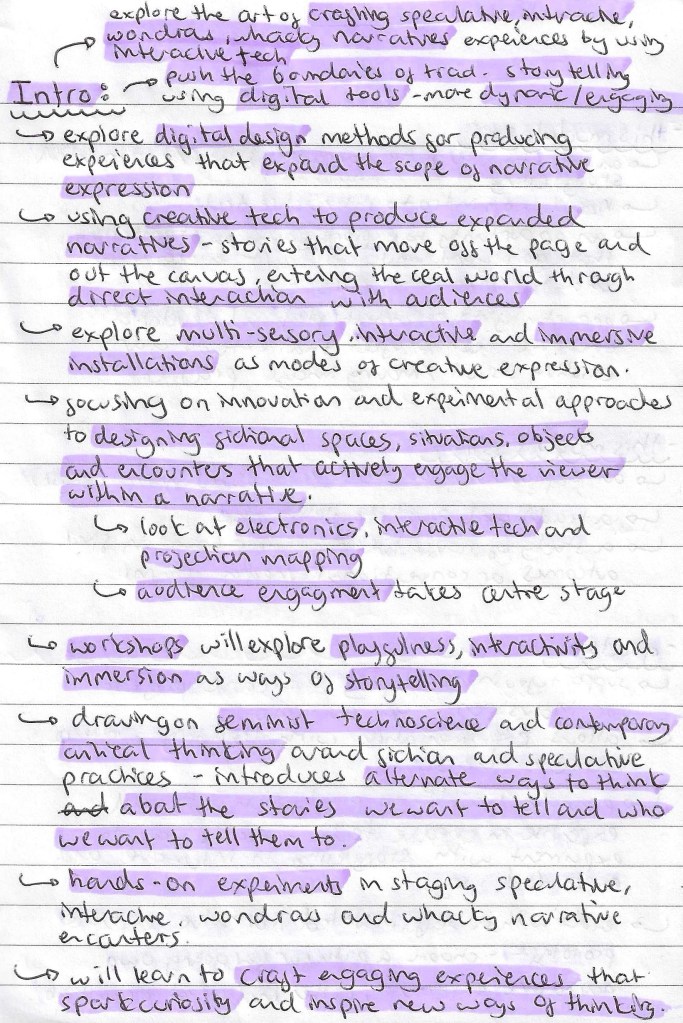 explore the art of crafting speculative, interactive,
wondrous, whacky narratives experiences by using
interactive tech
push the boundaries of trad. storytelling
Intro: using digital tools - more dynamic/engaging
explore digital design methods for producing
experiences that expand the scope of narrative
expression
using creative tech to produce expanded
narratives - stories that move off the page and
out the canvas, entering the real world through
direct interaction with audiences
explore multi-sensory, interactive and immersive
installations as modes of creative expression.
focusing on innovation and experimental approaches
to designing fictional spaces, situations, objects
and encounters that actively engage the viewer
within a narrative.
look at electronics, interactive tech and
projection mapping
audience engagment takes centre stage
workshops will explore playfulness, interactivity and
immersion as ways of storytelling
drawing on feminist technoscience and contemporary
critical thinking around fiction and speculative
practices - introduces alternate ways to think
and about the stories we want to tell and who
we want to tell them to.
hands-on experiments in staging speculative,
interactive, wondrous and whacky narrative
encounters.
will learn to craft engaging experiences that
spark curiosity and inspire new ways of thinking.